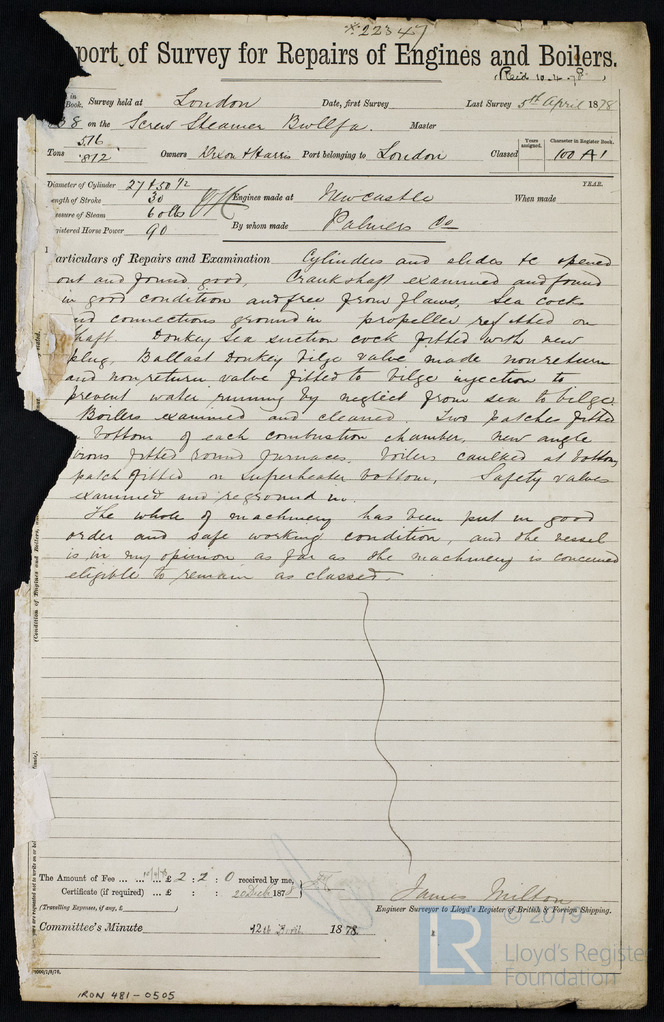 *22347
port of Survey for Repairs of Engines and Boilers.
(Recd 10.4.78)
in Book. Survey held at London Date, first Survey Last Survey 5th April 1878
38 on the Screw Steamer Bwllfa. Master
Tons 576 812 Owners Dixon & Harris Port belonging to London Classed Years assigned. Character in Register Book. 100 A1
Diameter of Cylinder 27 & 50 1/2 Engines made at Newcastle When made YEAR.
ength of Stroke 30
essure of Steam 60 lbs By whom made Palmers Co
gistered Horse Power 90
articulars of Repairs and Examination Cylinders and slides &c opened
out and found good, Crankshaft examined and found
in good condition and free from flaws, Sea cocks
and connections ground in propeller refitted on
haft. Donkey Sea suction cock fitted with new
plug. Ballast Donkey bilge valve made nonreturn
and nonreturn valve fitted to bilge injection to
prevent water running by neglect from sea to bilge.
Boilers examined and cleaned Two patches fitted
bottom of each combustion chamber, new angle
irons fitted round furnaces. boilers caulked at bottom,
patch fitted on Superheater bottom, Safety valves
examined and reground in.
The whole of machinery has been put in good
order and safe working condition, and the vessel
is in my opinion as far as the machinery is concerned
eligible to remain as classed.
(Condition of Engines and Boilers,
The Amount of Fee ... ... £ 2 : 2 : 0 received by me,
Certificate (if required) ... £ : : 187
(Travelling Expenses, if any, £ )
James Milton
Engineer Surveyor to Lloyd's Register of British & Foreign Shipping.
Committee's Minute 12th April 1878.
© 2019
LR
Lloyd's Register
Foundation
IRON 481-0505